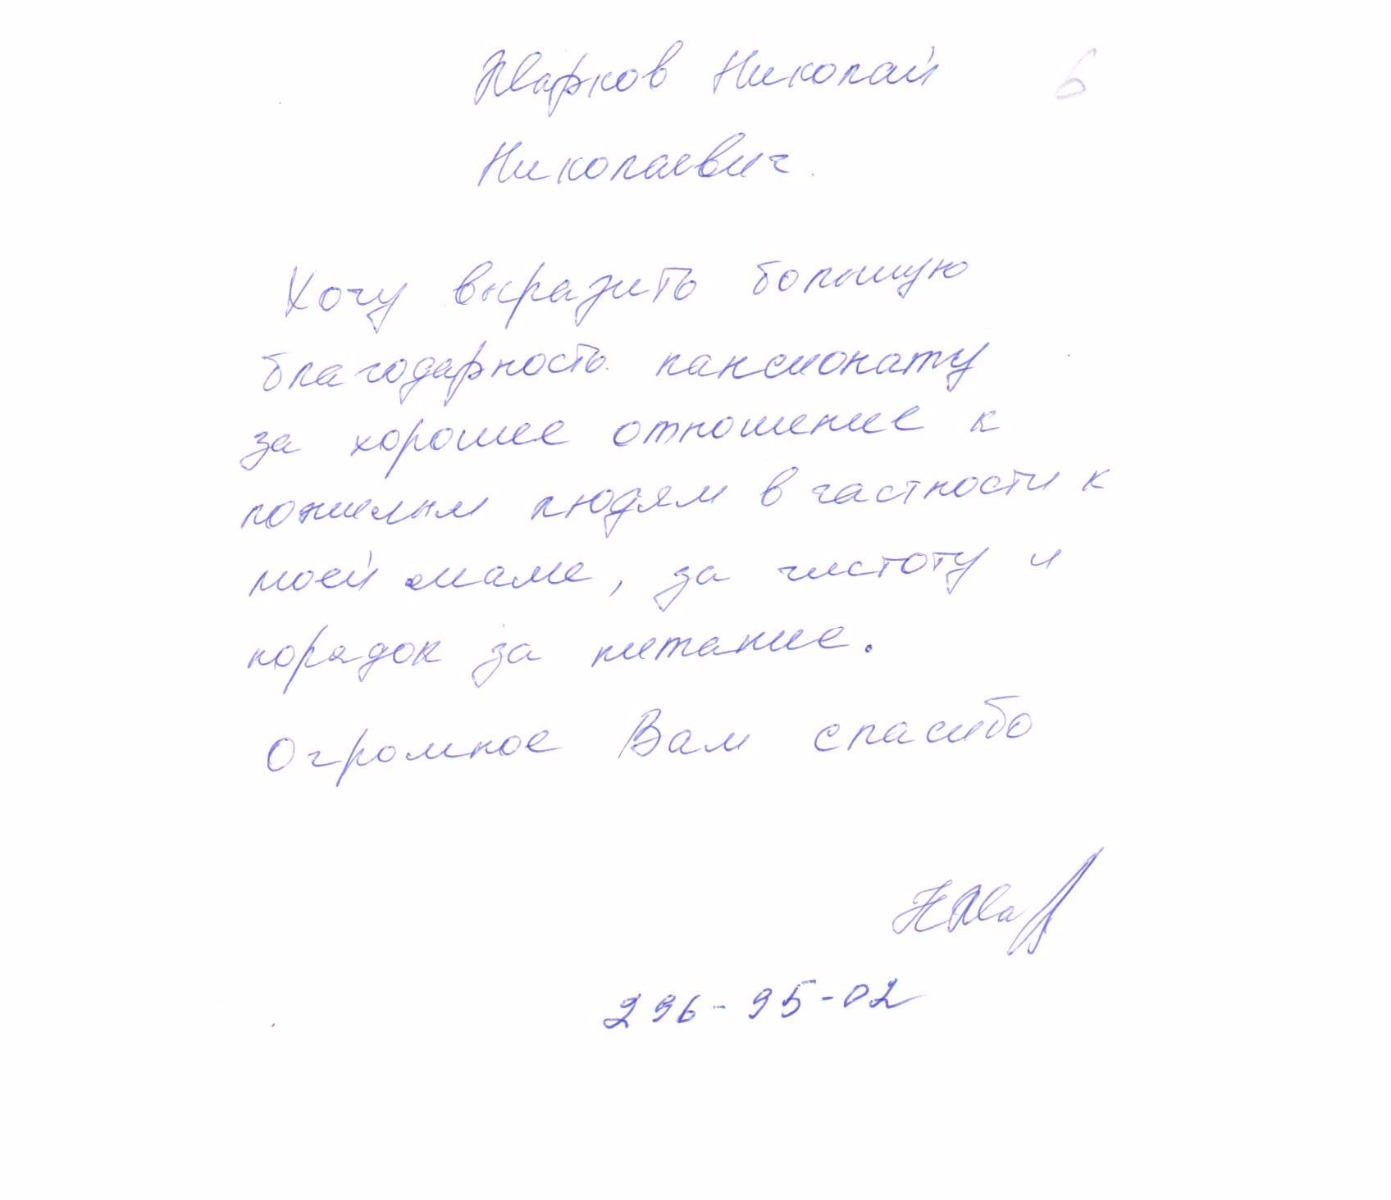 Жарков Николай 6
Николаевич.
Хочу выразить большую
благодарность пансионату
за хорошее отношение к
пожилым людям в частности к
моей маме, за чистоту и
порядок за питание.
Огромное Вам спасибо
296-95-02